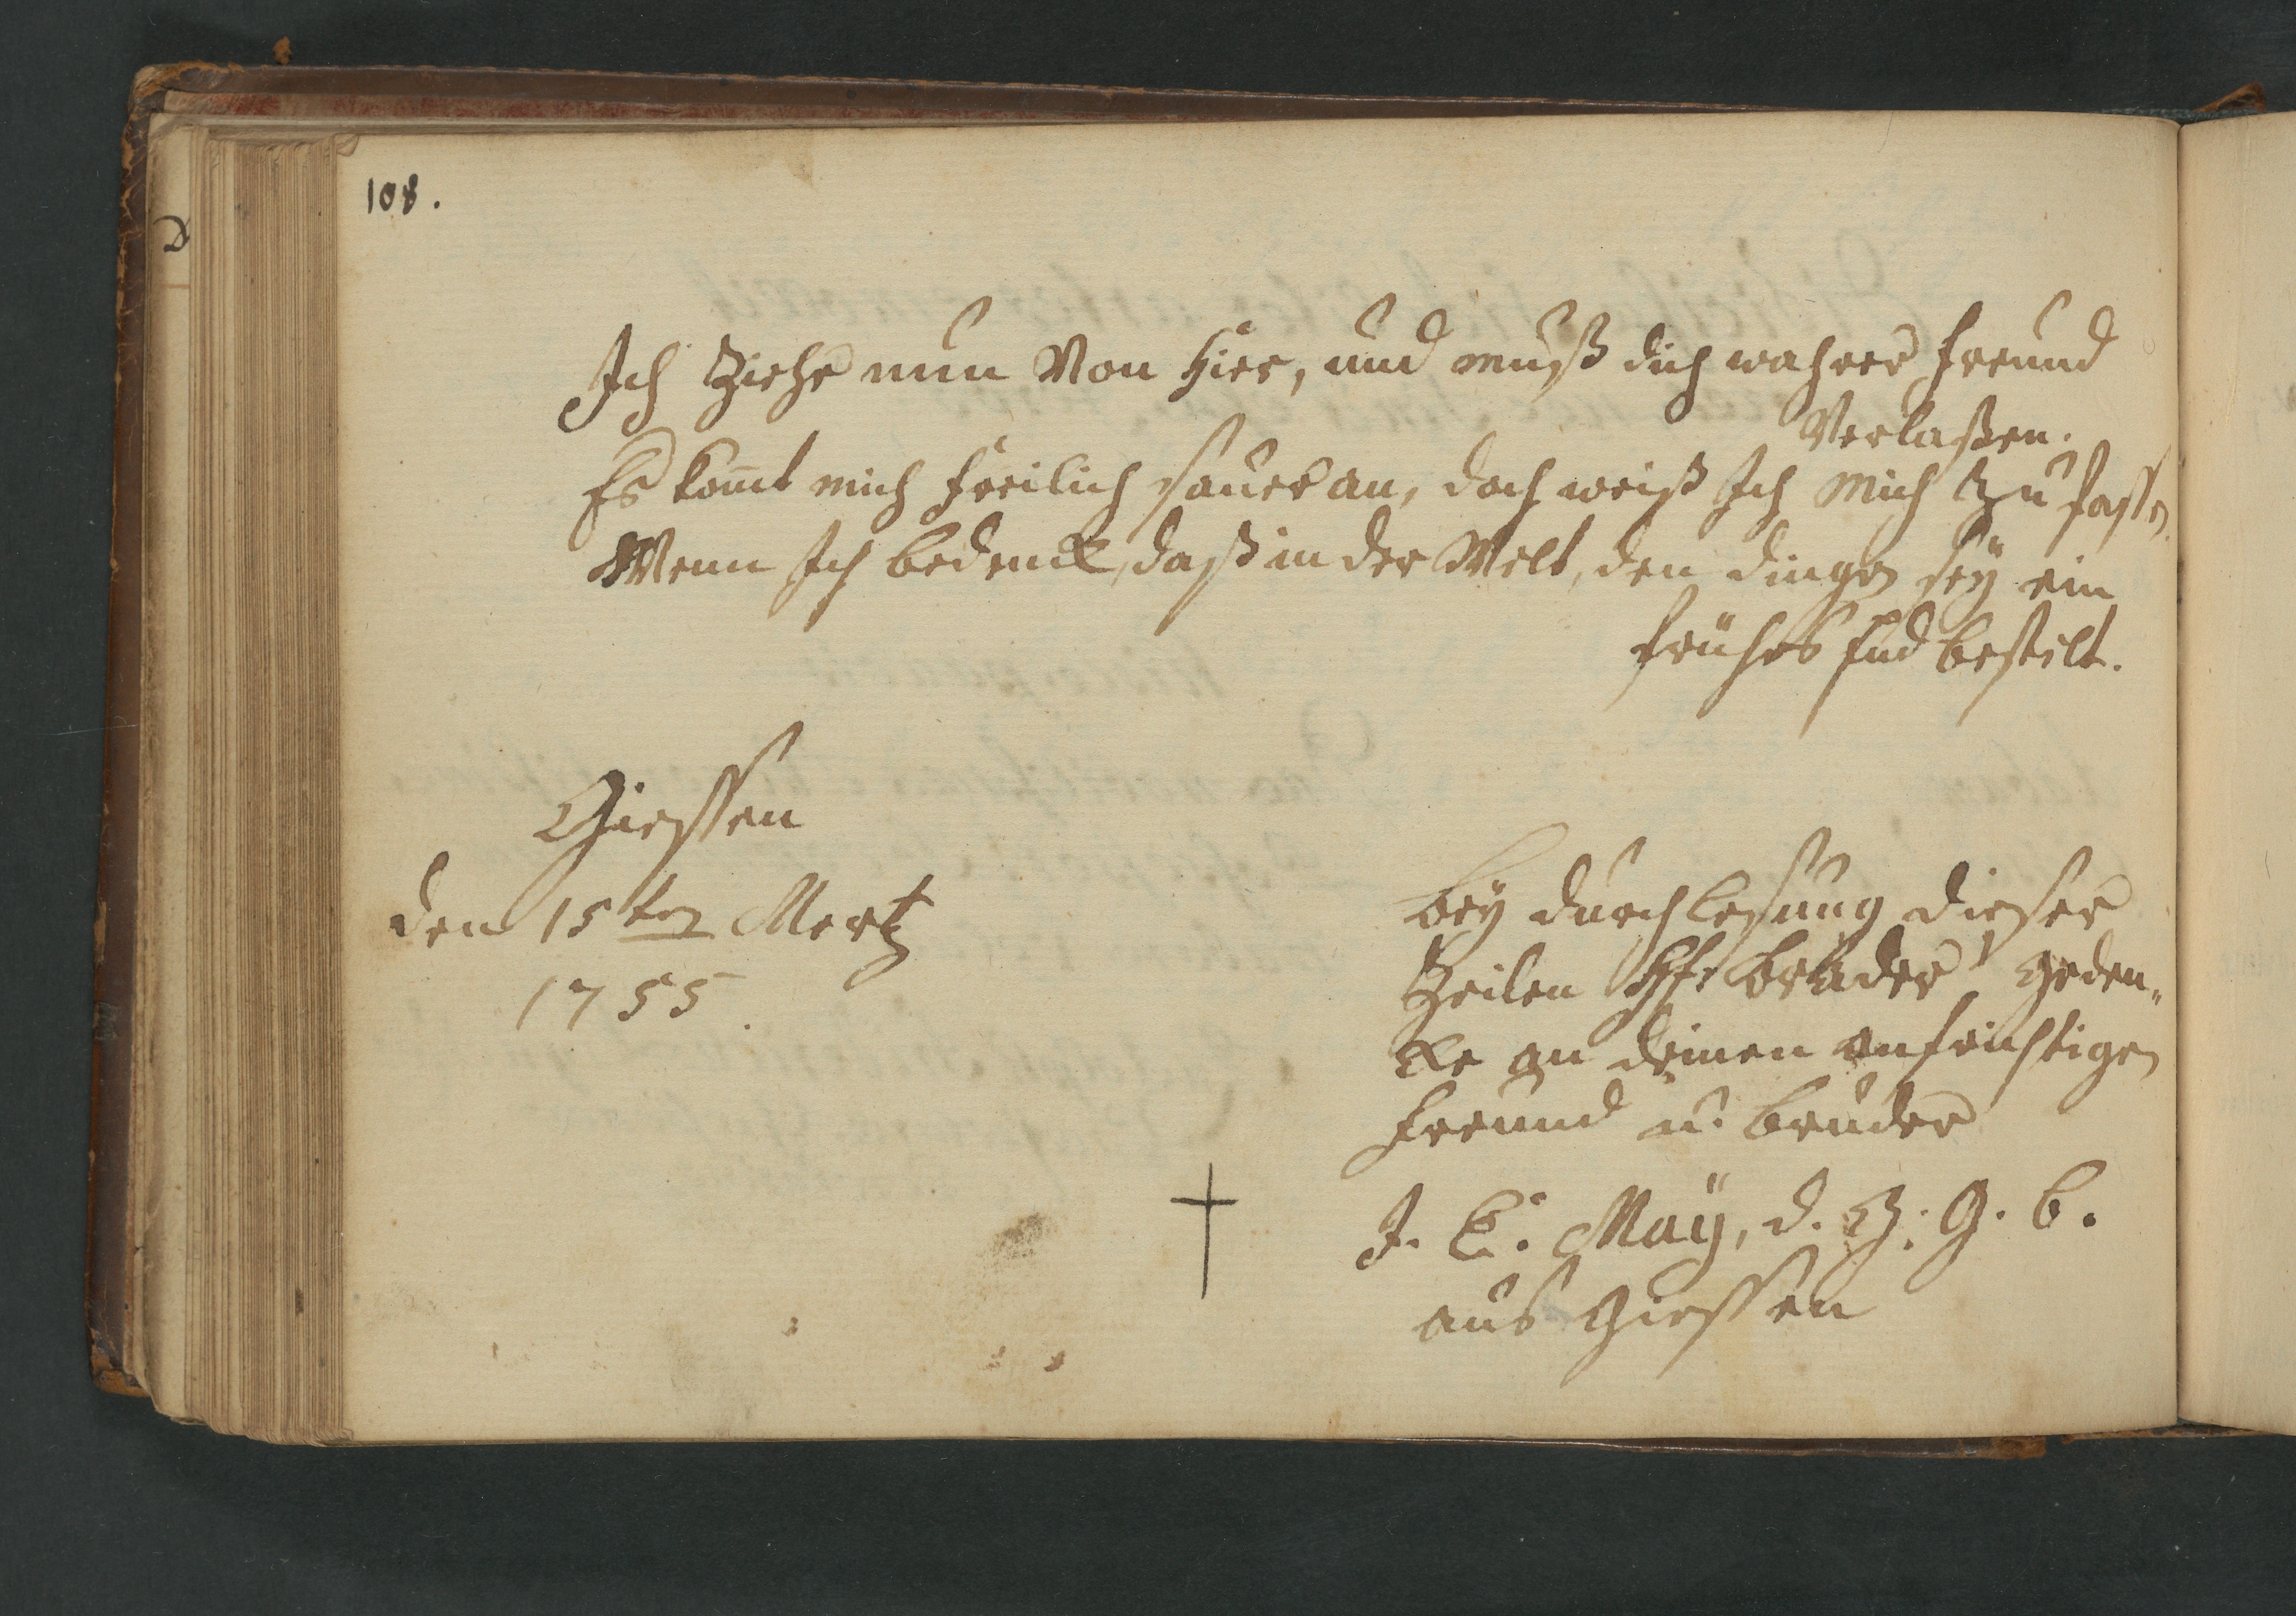 108.
Ich Ziehe nun Von hier, und muß dich wahrer freund
Verlaßen.
Es kom̄t mich freilich sauer an, doch weiß Ich mich zu faßen
Wenn Ich bedenck, daß in der Welt, den dingen seÿ ein
frühes End bestelt.
Giessen
den 15ten Mertz
1755.
beÿ durchlesung dieser
Zeilen bruder geden„
cke an deinen aufrichtigen
freund u. bruder
J. C. Maÿ, d. G. G. b.
aus Giessen